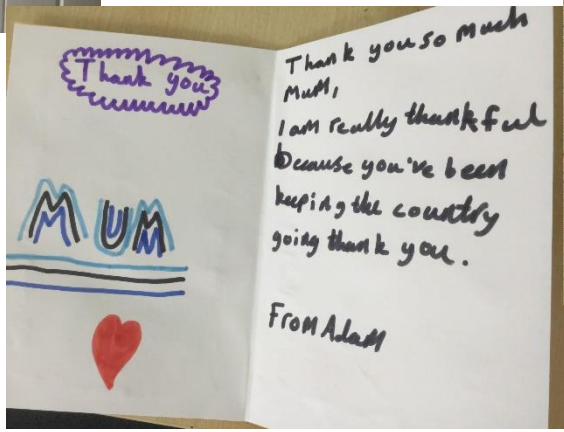 Thank you
MUM
Thank you so much
Mum,
I am really thankful
because you've been
keeping the country
going thank you.
From Adam